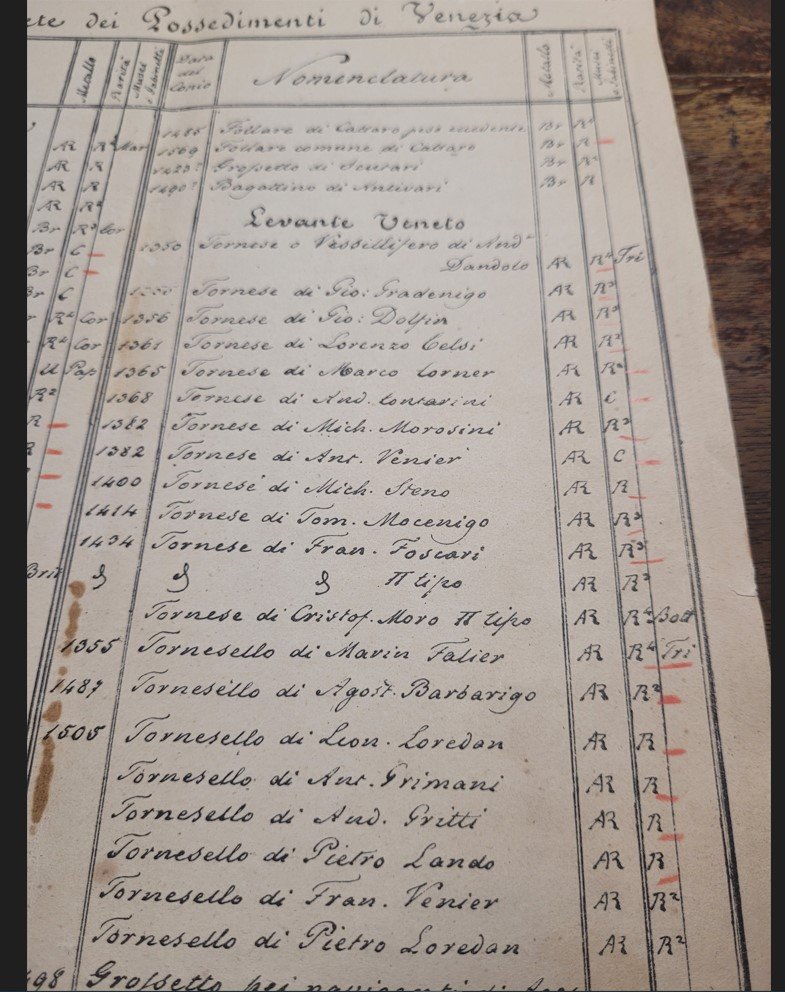 ete dei Possedimenti di Venezia
Metallo Rarità Musei e Gabinetti Data del Conio Nomenclatura Metallo Rarità Musei
1485 Follare di Cattaro Br R²
AR R² Mar 1569 Follare comune di Cattaro Br R
AR R 1423? Grossetto di Scutari Br R²
AR R 1490? Bagattino di Antivari Br R
AR R²
Levante Veneto
Br R³ Cor
Br C 1350 Tornese o Vessillifero di And.ª
Dandolo AR R⁴ Tri
Br C
Br C Tornese di Gio: Gradenigo AR R³
R⁴ Cor 1356 Tornese di Gio: Dolfin AR R³
R⁴ Cor 1361 Tornese di Lorenzo Celsi AR R²
U Pap 1365 Tornese di Marco Corner AR R²
R² 1368 Tornese di And. Contarini AR C
R 1382 Tornese di Mich. Morosini AR R³
R 1382 Tornese di Ant. Venier AR C
1400 Tornese di Mich. Steno AR R
1414 Tornese di Tom. Mocenigo AR R³
1434 Tornese di Fran. Foscari AR R³
Π tipo AR R³
Tornese di Cristof. Moro Π tipo AR R⁴ Bott
1355 Tornesello di Marin Falier AR R⁴ Tri
1487 Tornesello di Agost. Barbarigo AR R²
1505 Tornesello di Lion. Loredan AR R
Tornesello di Ant. Grimani AR R
Tornesello di And. Gritti AR R
Tornesello di Pietro Lando AR R
Tornesello di Fran. Venier AR R²
Tornesello di Pietro Loredan AR R²
498 Grossetto pei naviganti di